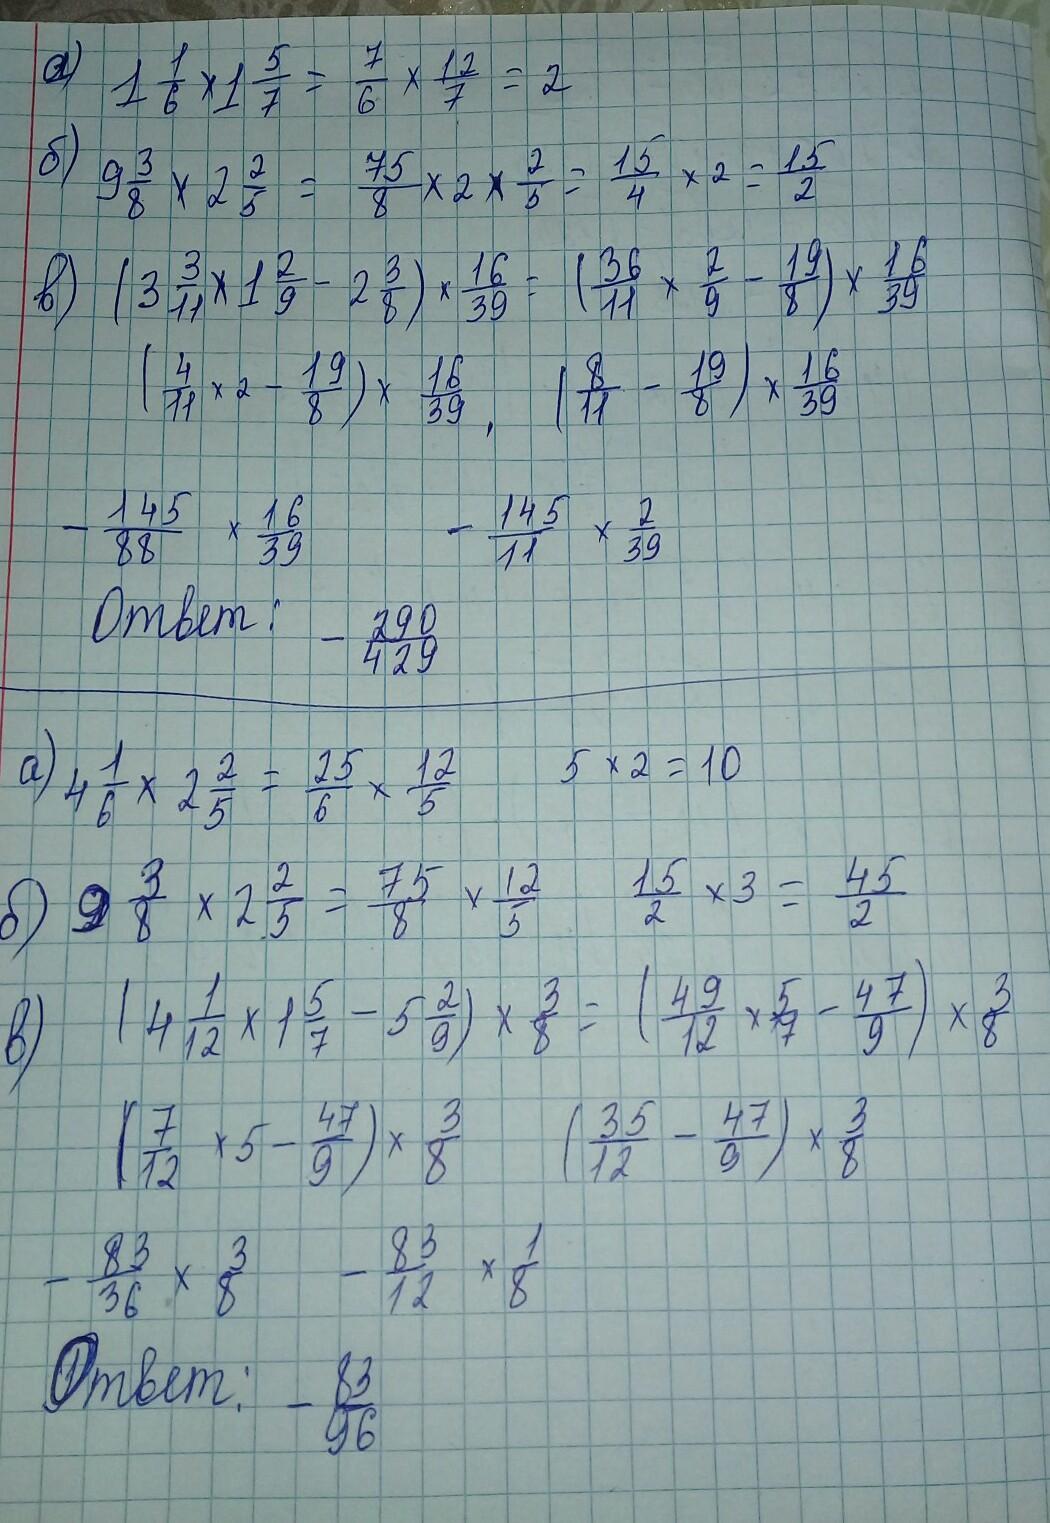 а) 1 1/6 × 1 5/7 = 7/6 × 12/7 = 2
б) 9 3/8 × 2 2/5 = 75/8 × 2 × 2/5 = 15/4 × 2 = 15/2
в) (3 3/11 × 1 2/9 - 2 3/8) × 16/39 = (36/11 × 2/9 - 19/8) × 16/39
(4/11 × 2 - 19/8) × 16/39, (8/11 - 19/8) × 16/39
- 145/88 × 16/39 - 145/11 × 2/39
Ответ: - 290/429
а) 4 1/6 × 2 2/5 = 25/6 × 12/5 5 × 2 = 10
б) 9 3/8 × 2 2/5 = 75/8 × 12/5 15/2 × 3 = 45/2
в) (4 1/12 × 1 5/7 - 5 2/9) × 3/8 = (49/12 × 5/7 - 47/9) × 3/8
(7/12 × 5 - 47/9) × 3/8 (35/12 - 47/9) × 3/8
- 83/36 × 3/8 - 83/12 × 1/8
Ответ: - 83/96